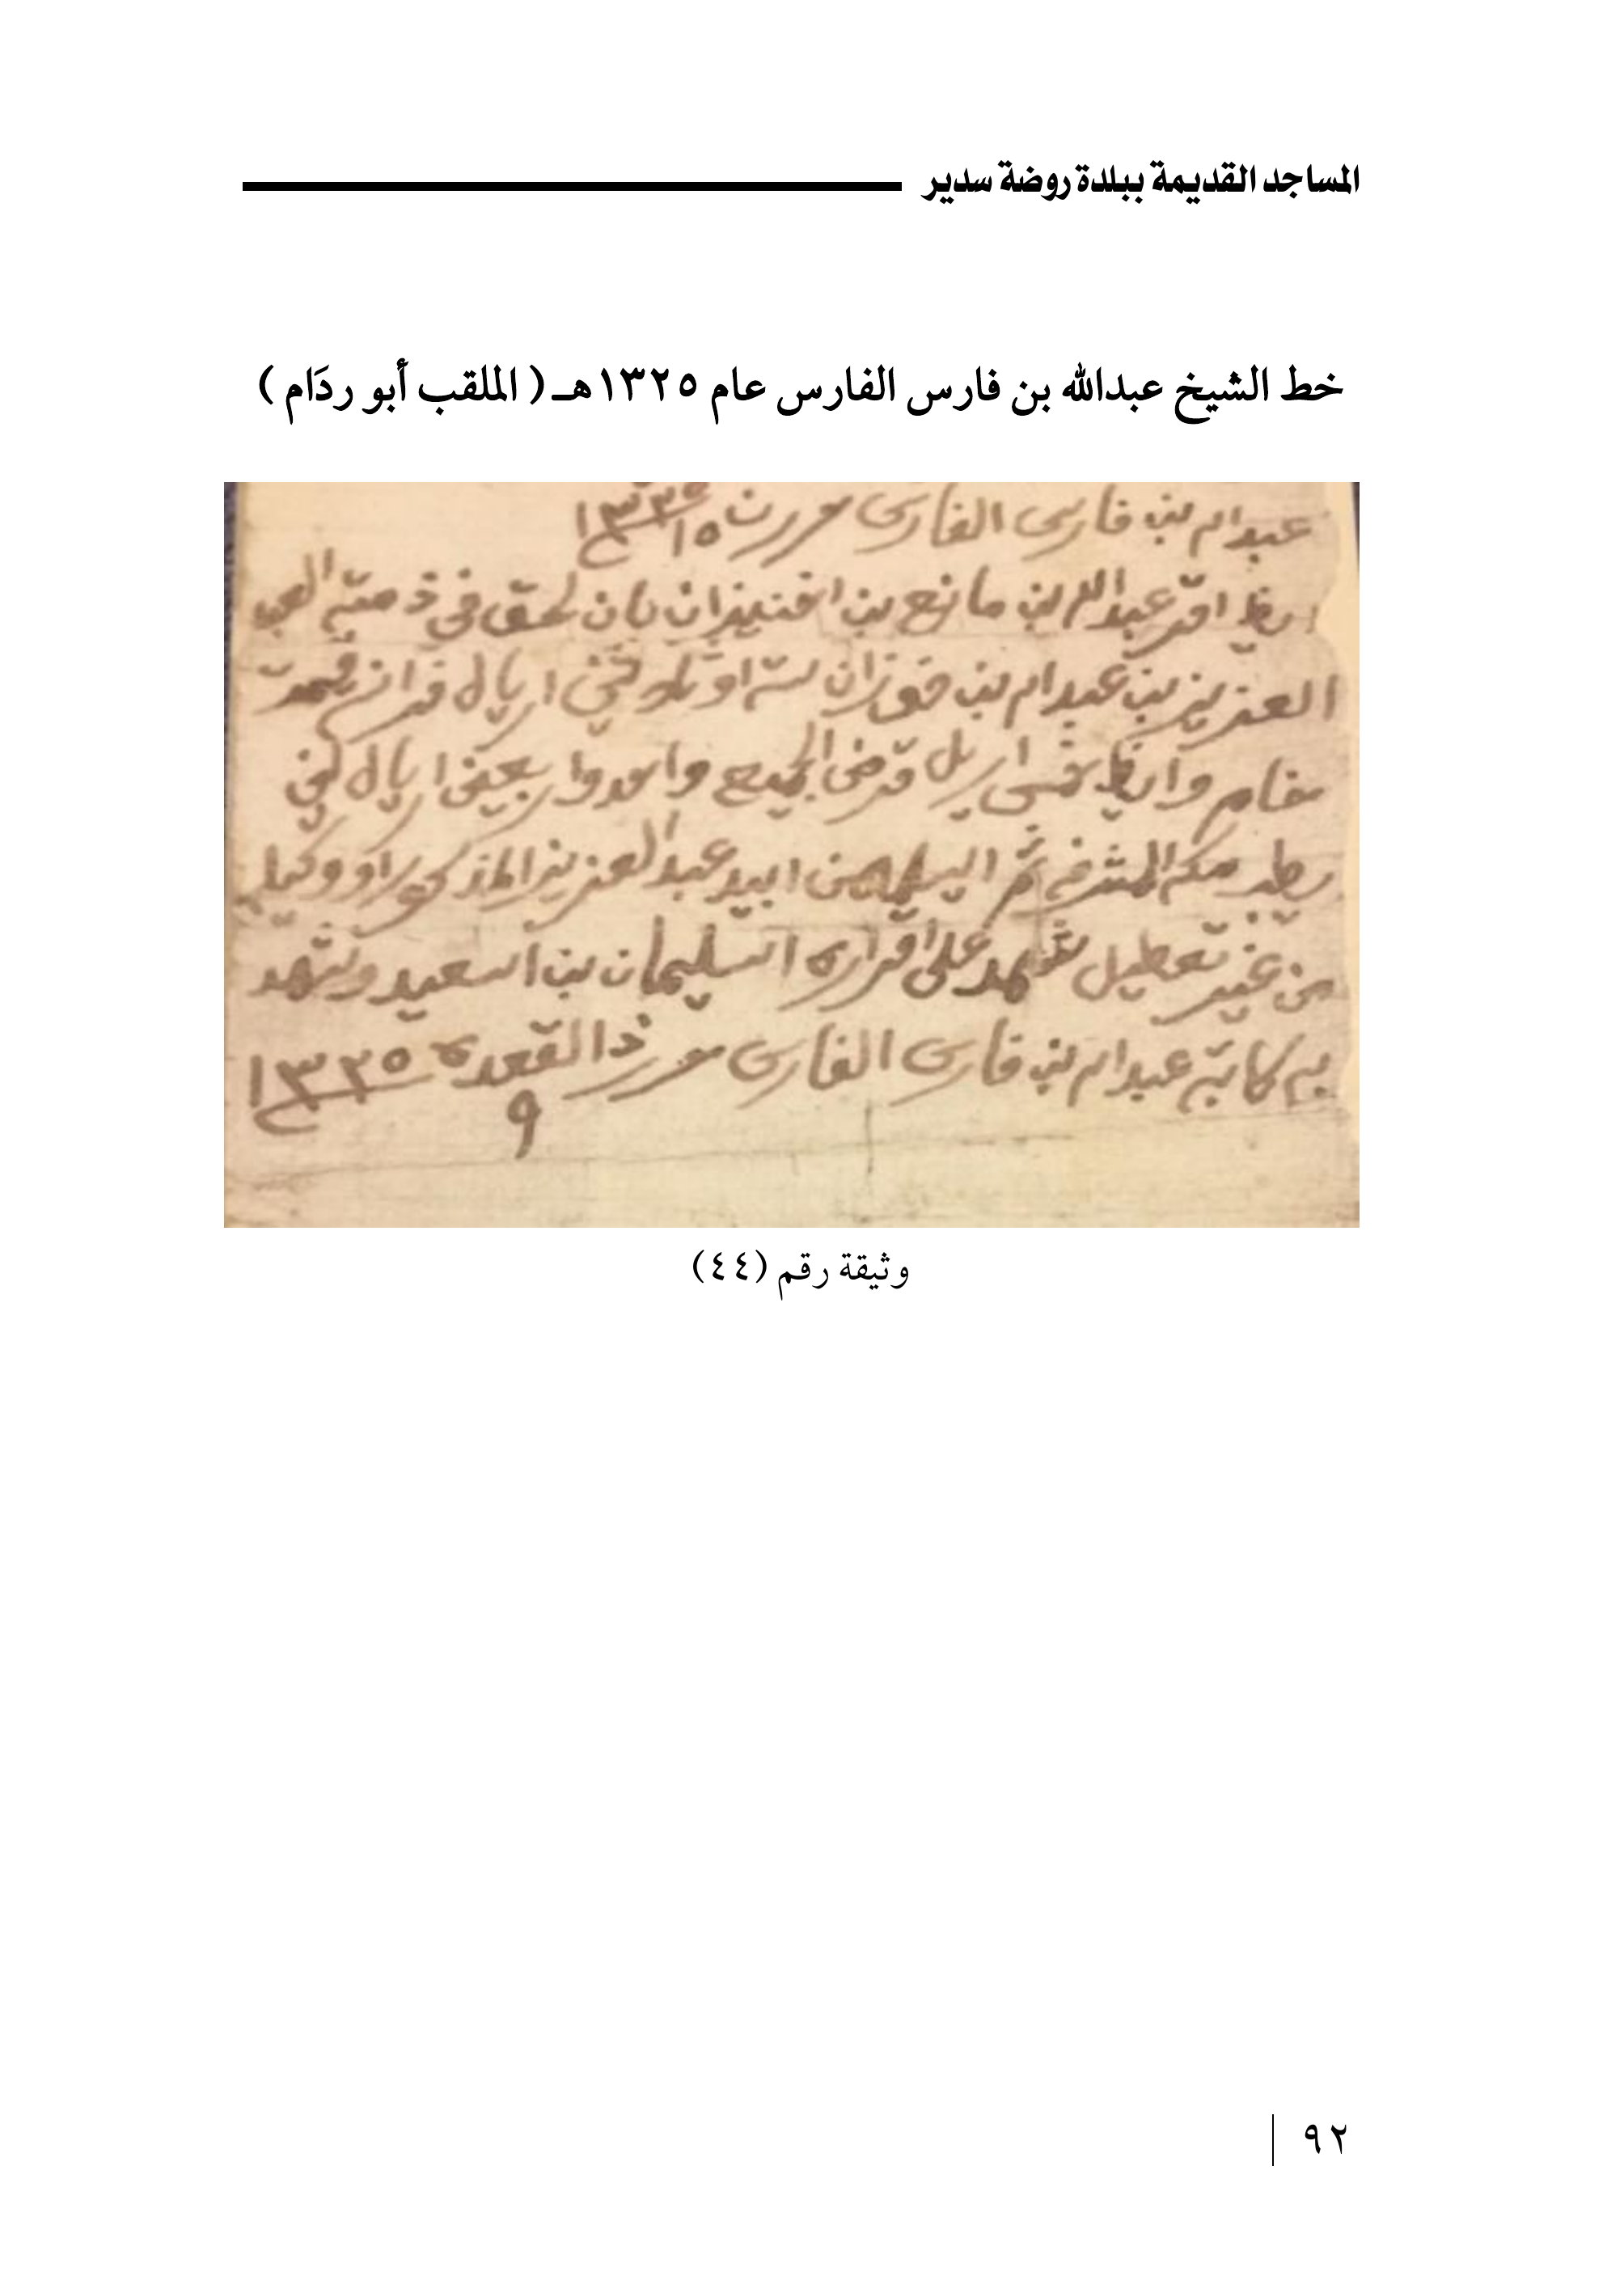 المساجد القديمة ببلدة روضة سدير
خط الشيخ عبدالله بن فارس الفارس عام ١٣٢٥هـ ( الملقب أبو ردَام )
عبدالله بن فارس الفارس حرر
ايظ اقر عبدالله بن مانع بن اخنيزان بان لحق في ذمته العبد
العزيز بن عبدالله بن فوزان ستة او ثلاثين اريال فرانز
وايظ خمس اريل قرض الجميع واحد واربعين اريال
مكه المشرفه ثم اليسلمهن ابيد عبد العزيز المذكور او وكيله
من غير تعطيل شهد على اقراره السليمان بن السعيد وشهد
به كاتبه عبدالله بن فارس الفارس حرر ذا القعده
٩
وثيقة رقم (٤٤)
٩٢